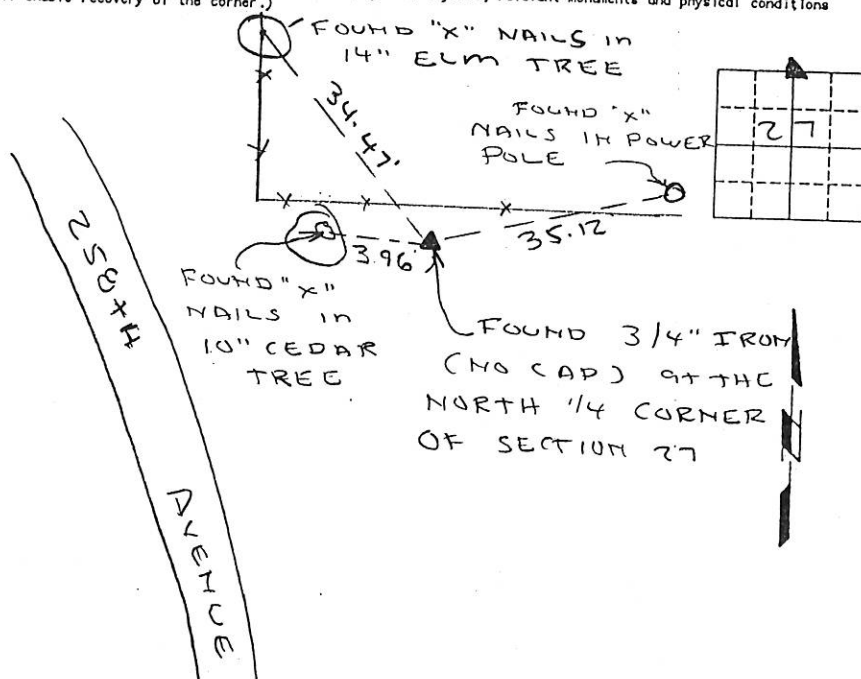 enable recovery of the corner.)
monuments and physical conditions
FOUND "X" NAILS in
14" ELM TREE
34.47'
FOUND "X"
NAILS IN POWER
POLE
27
258th
3.96'
35.12'
FOUND "X"
NAILS in
10" CEDAR
TREE
FOUND 3/4" IRON
(NO CAP) at THE
NORTH 1/4 CORNER
OF SECTION 27
N
AVENUE